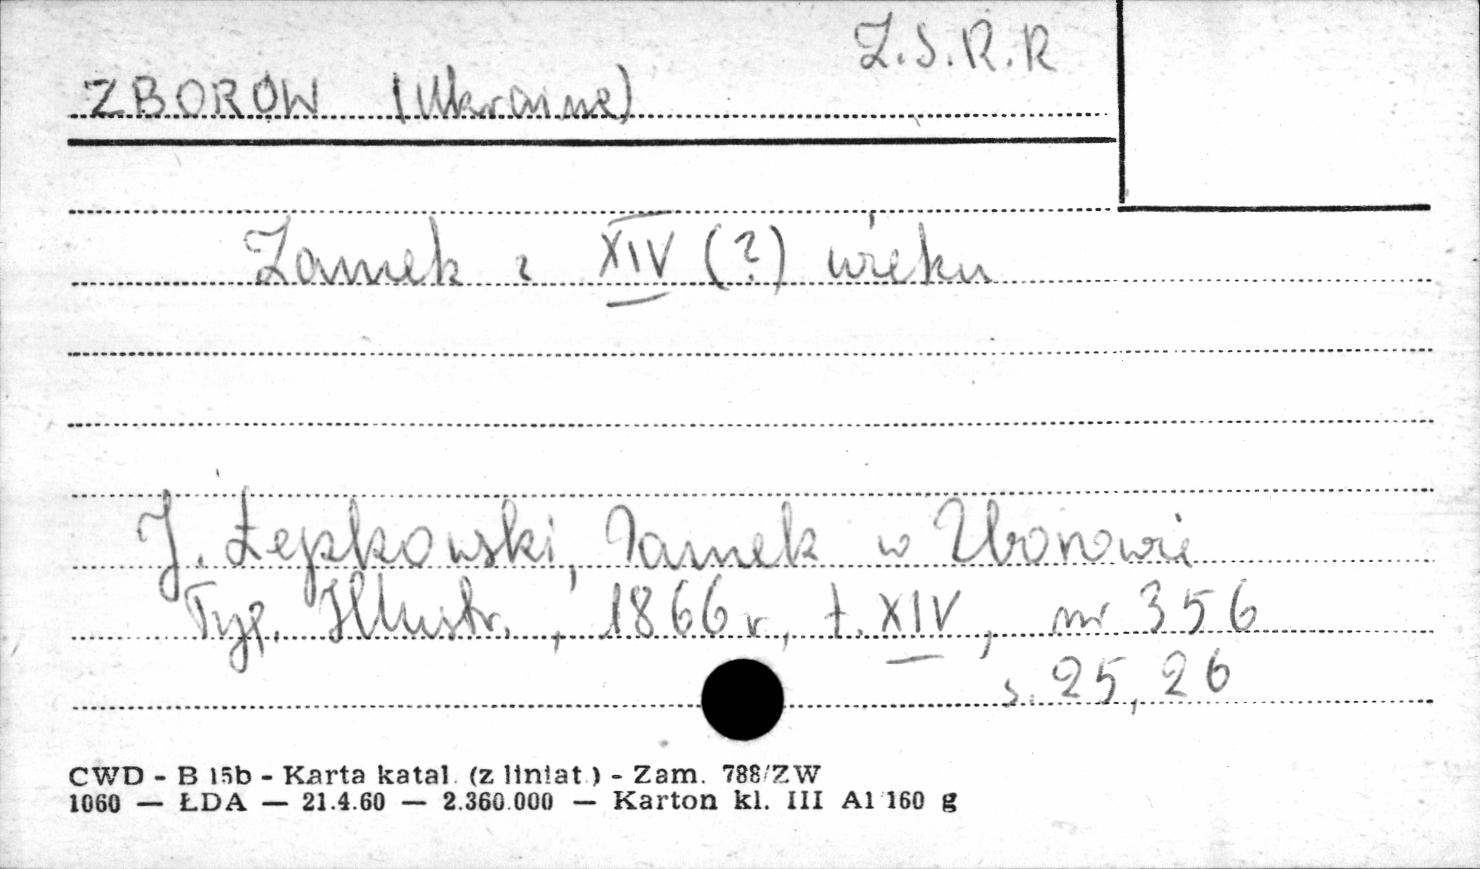 Z.S.R.R
ZBORÓW (Ukraine)
Zamek z XIV (?) wieku
J. Łepkowski, Zamek w Zborowie
Tyg. Illustr., 1866 r., t. XIV, nr 356
s. 25, 26
CWD - B 15b - Karta katal. (z liniat.) - Zam. 788/ZW
1060 — ŁDA — 21.4.60 — 2.360.000 — Karton kl. III A1 160 g